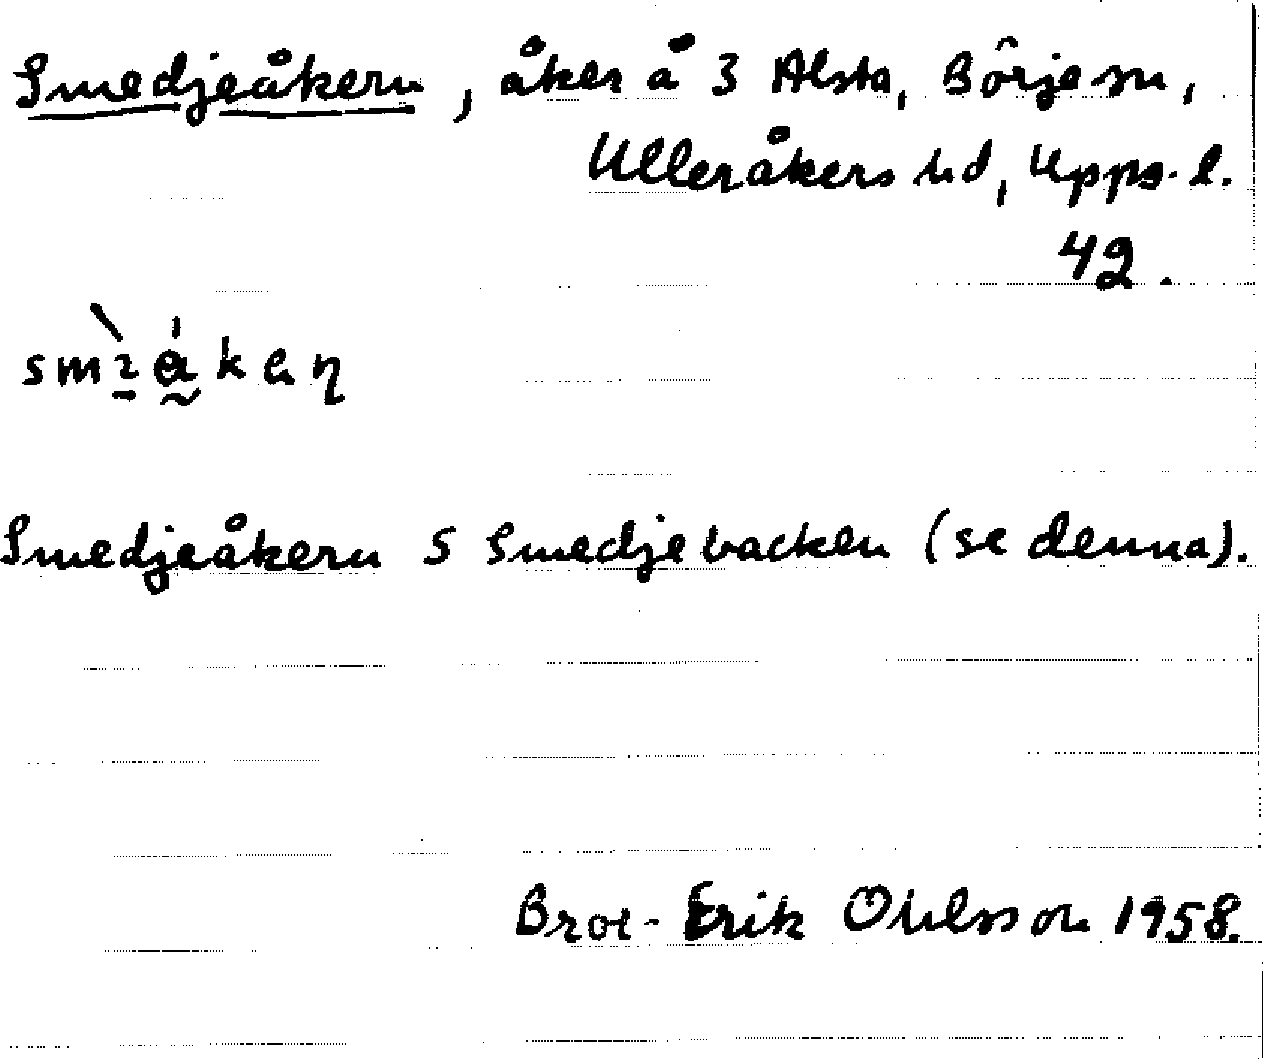 Smedjeåkern, åker å 3 Alsta, Börje sn,
Ulleråkers hd, Upps. l.
42.
Smedjeåkern S Smedjebacken (se denna).
Bror-Erik Ohlsson 1958.